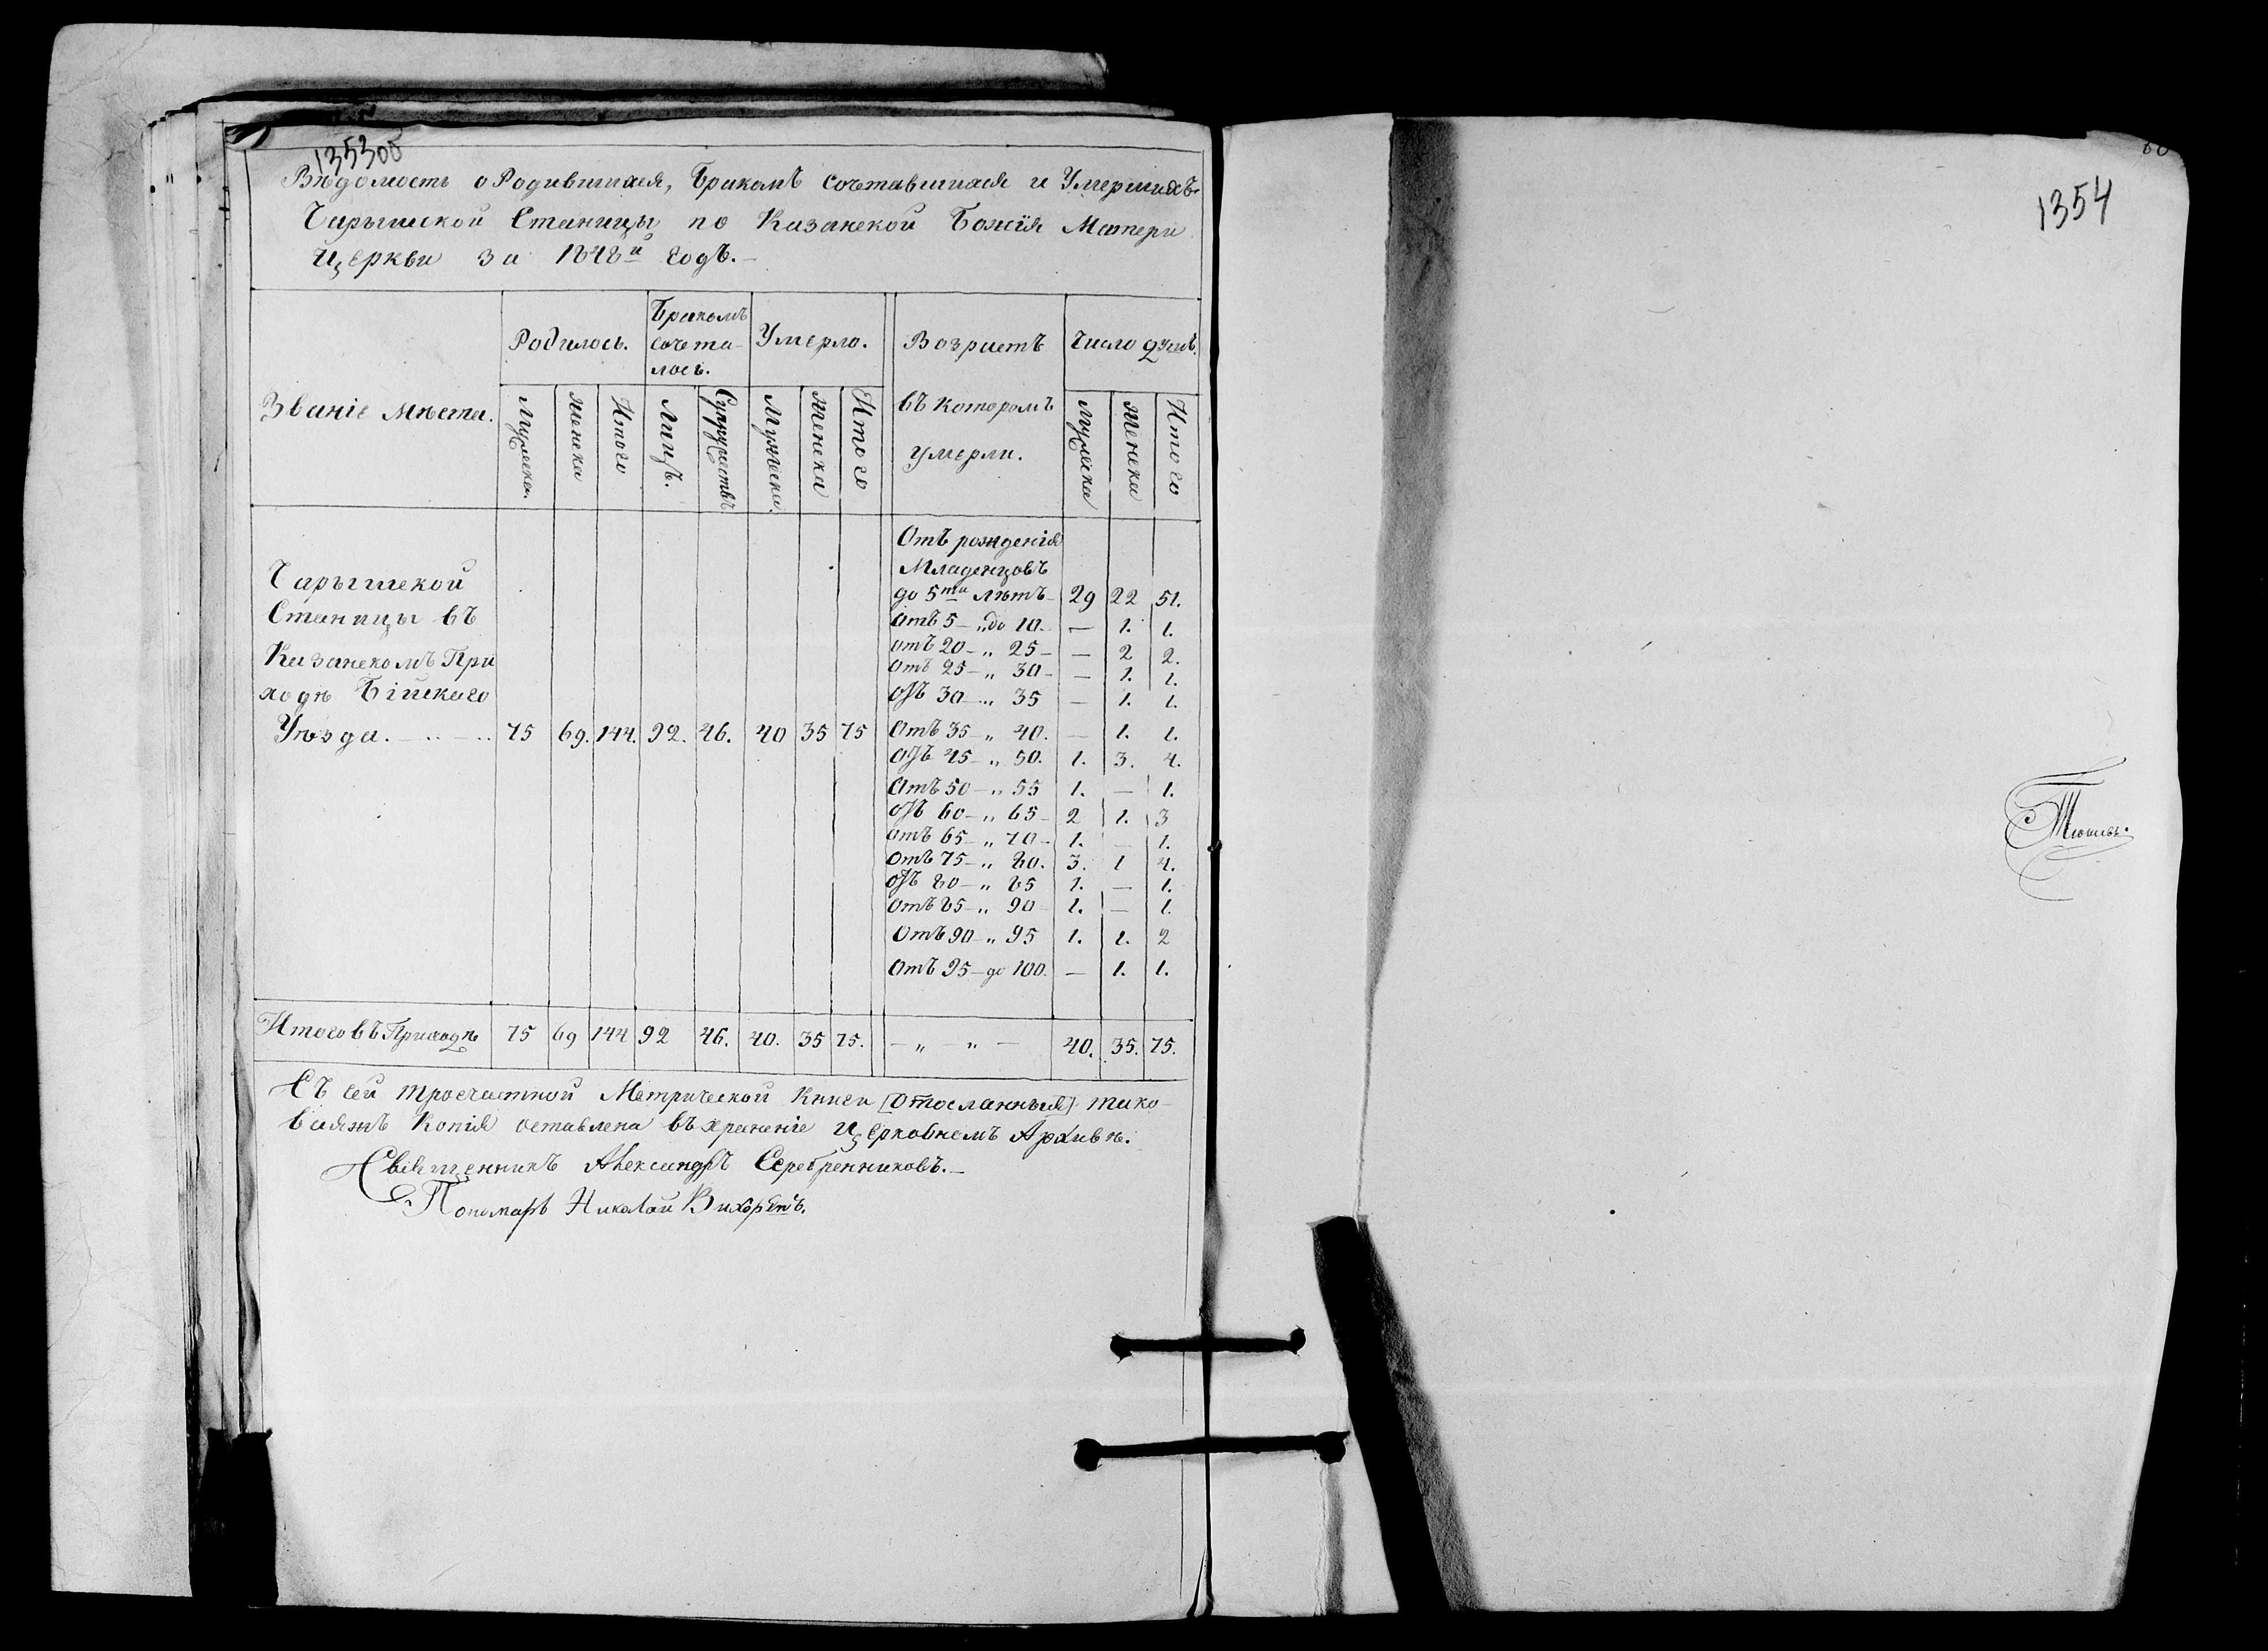 1353об
Вѣдомость о Родившихся, Бракомъ сочетавшихся и Умершихъ
Чарышской Станицы по Казанской Божія Матери
Церкви за 1848й годъ.
Званіе Мѣста. Родилось. Бракомъ сочета- лось. Умерло. Возрастъ въ которомъ умерли. Число душъ.
Мужеска. Женска Итого Лицъ. Супружествъ Мужеска. Женска Итого Мужеска Женска Итого
Отъ рожденія
Младенцовъ
до 5ти лѣтъ 29 22 51.
Отъ 5 „ до 10. — 1. 1.
отъ 20 — „ 25 — 2 2.
Отъ 25 — „ 30 — 1. 1.
отъ 30 — „ 35 — 1. 1.
Чарышской
Станицы въ
Казанскомъ При
ходѣ Бійскаго
Уѣзда. 75 69. 144. 92. 46. 40 35 75 Отъ 35 „ 40. — 1. 1.
отъ 45 — „ 50. 1. 3. 4.
Отъ 50 — „ 55 1. — 1.
отъ 60 — „ 65 2 1. 3
отъ 65 — „ 70 1. — 1.
Отъ 75 — „ 80. 3. 1 4.
отъ 80 — „ 85 1. — 1.
Отъ 85 — „ 90 1. — 1.
Отъ 90 „ 95 1. 1. 2
Отъ 95 — до 100. — 1. 1.
Итого въ Приходѣ 75 69 144 92 46. 40. 35 75. — „ — „ — 40. 35. 75.
Съ сей троечастной Метрической Книги [отосланныя] тако-
ваяжъ Копія оставлена въ храненіе Церковнемъ Архивѣ.
Священникъ Александръ Серебренниковъ.
Пономарь Николай Вихоревъ.
1354